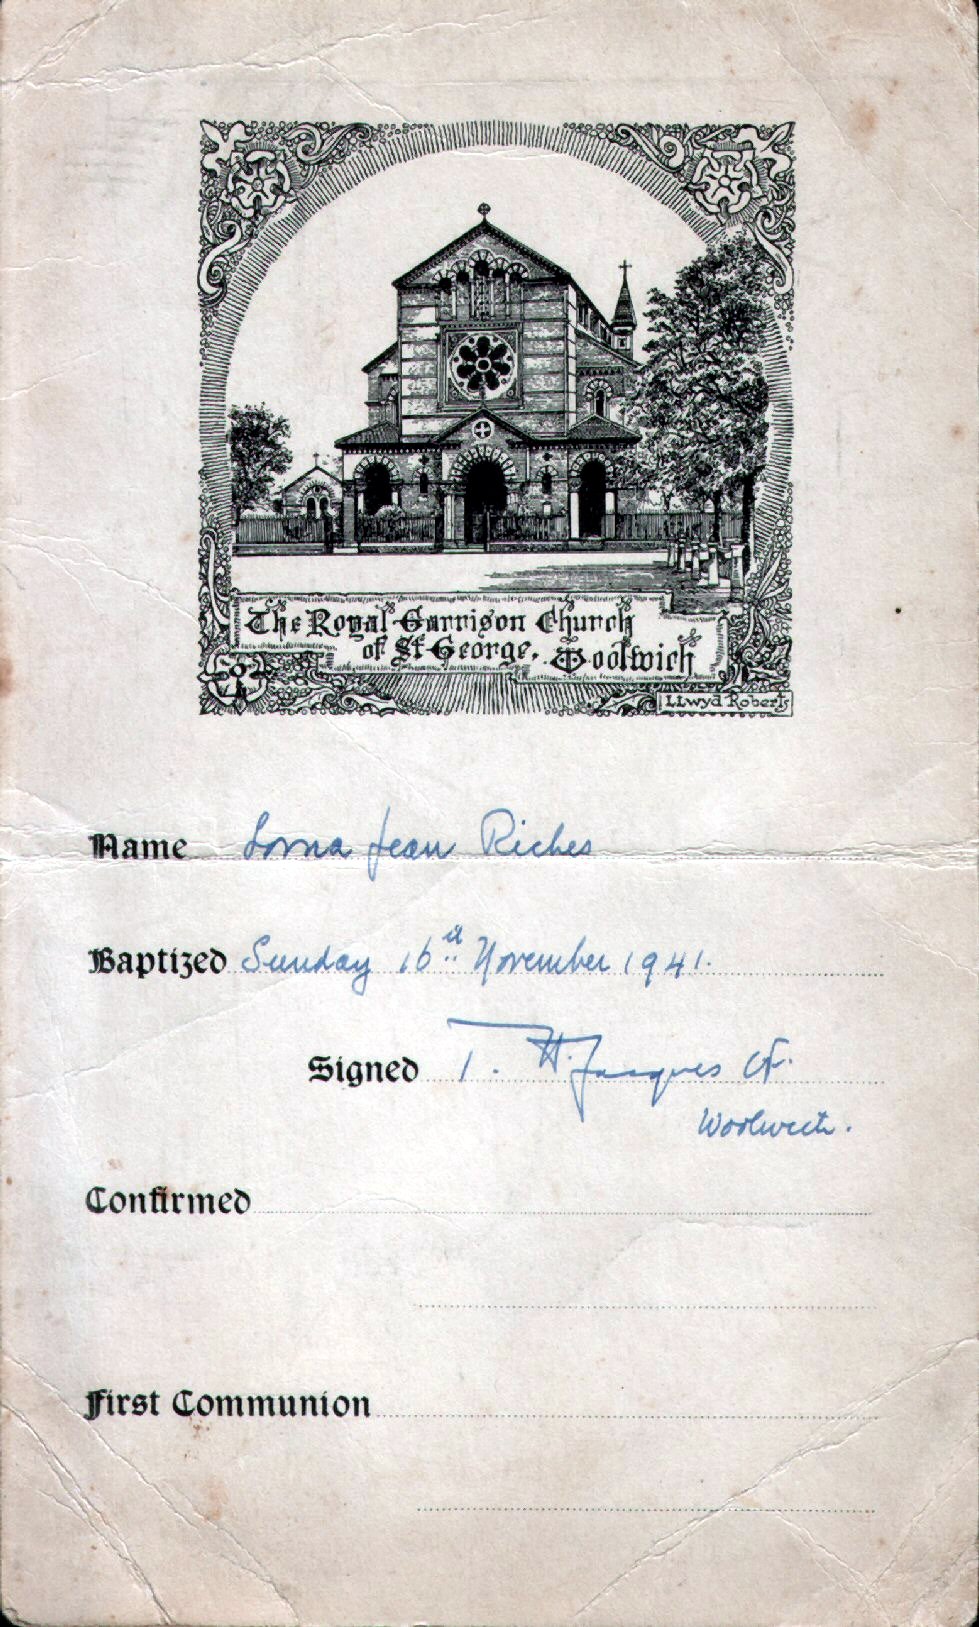 The Royal Garrison Church
of St. George, Woolwich
LLwyd Roberts
Name Lorna Jean Riches
Baptized Sunday 16th November 1941.
Signed T. H. Jacques CF.
Woolwich.
Confirmed
First Communion